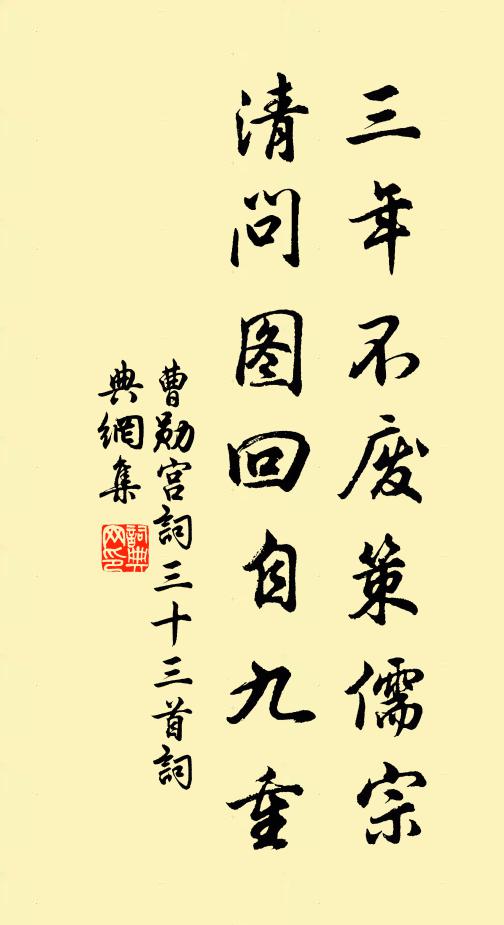 三年不废策儒宗
清问图回自九重
曹勋宫詞三十三首詞
典網集
詞典网印